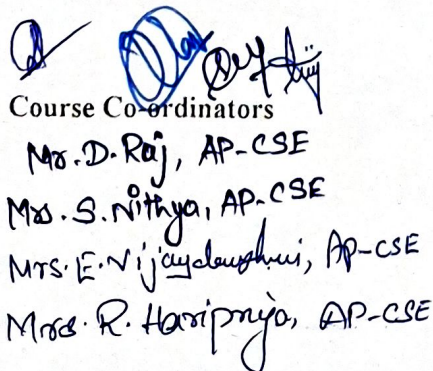 Course Co-ordinators
Mr. D. Raj, AP-CSE
Mrs. S. Nithya, AP-CSE
Mrs. E. Vijayalakshmi, AP-CSE
Mrs. R. Haripriya, AP-CSE